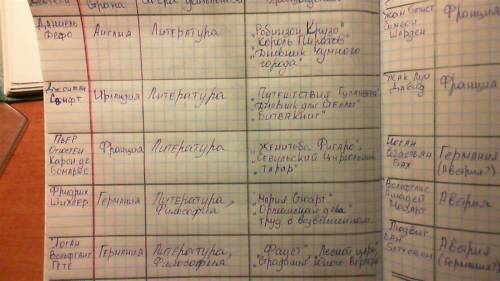 Страна
Даниель
Дефо
Англия
Литература
"Робинзон Крузо"
"Король Пиратов"
"Дневник Чумного
города"
Джонатан
Свифт
Ирландия
Литература
"Путешествия Гулливера"
"Дневник для Стеллы"
"Битва книг"
Пьер
Огюстен
Карон де
Бомарше
Франция
Литература
"Женитьба Фигаро"
"Севильский Цирюльник"
"Тарар"
Фридрих
Шиллер
Германия
Литература,
Философия
"Мария Стюарт"
"Орлеанская дева"
Труд о возвышенном
Иоган
Вольфганг
Гёте
Германия
Литература,
Философия
"Фауст" "Лесной царь"
"Страдания юного Вертера"
Жан Батист
Симеон
Шарден
Франция
Жак Луи
Давид
Франция
Иоган
Себастьян
Бах
Германия
(Австрия?)
Вольфганг
Амадей
Моцарт
Австрия
Людвиг
ван
Бетховен
Австрия
(Германия?)